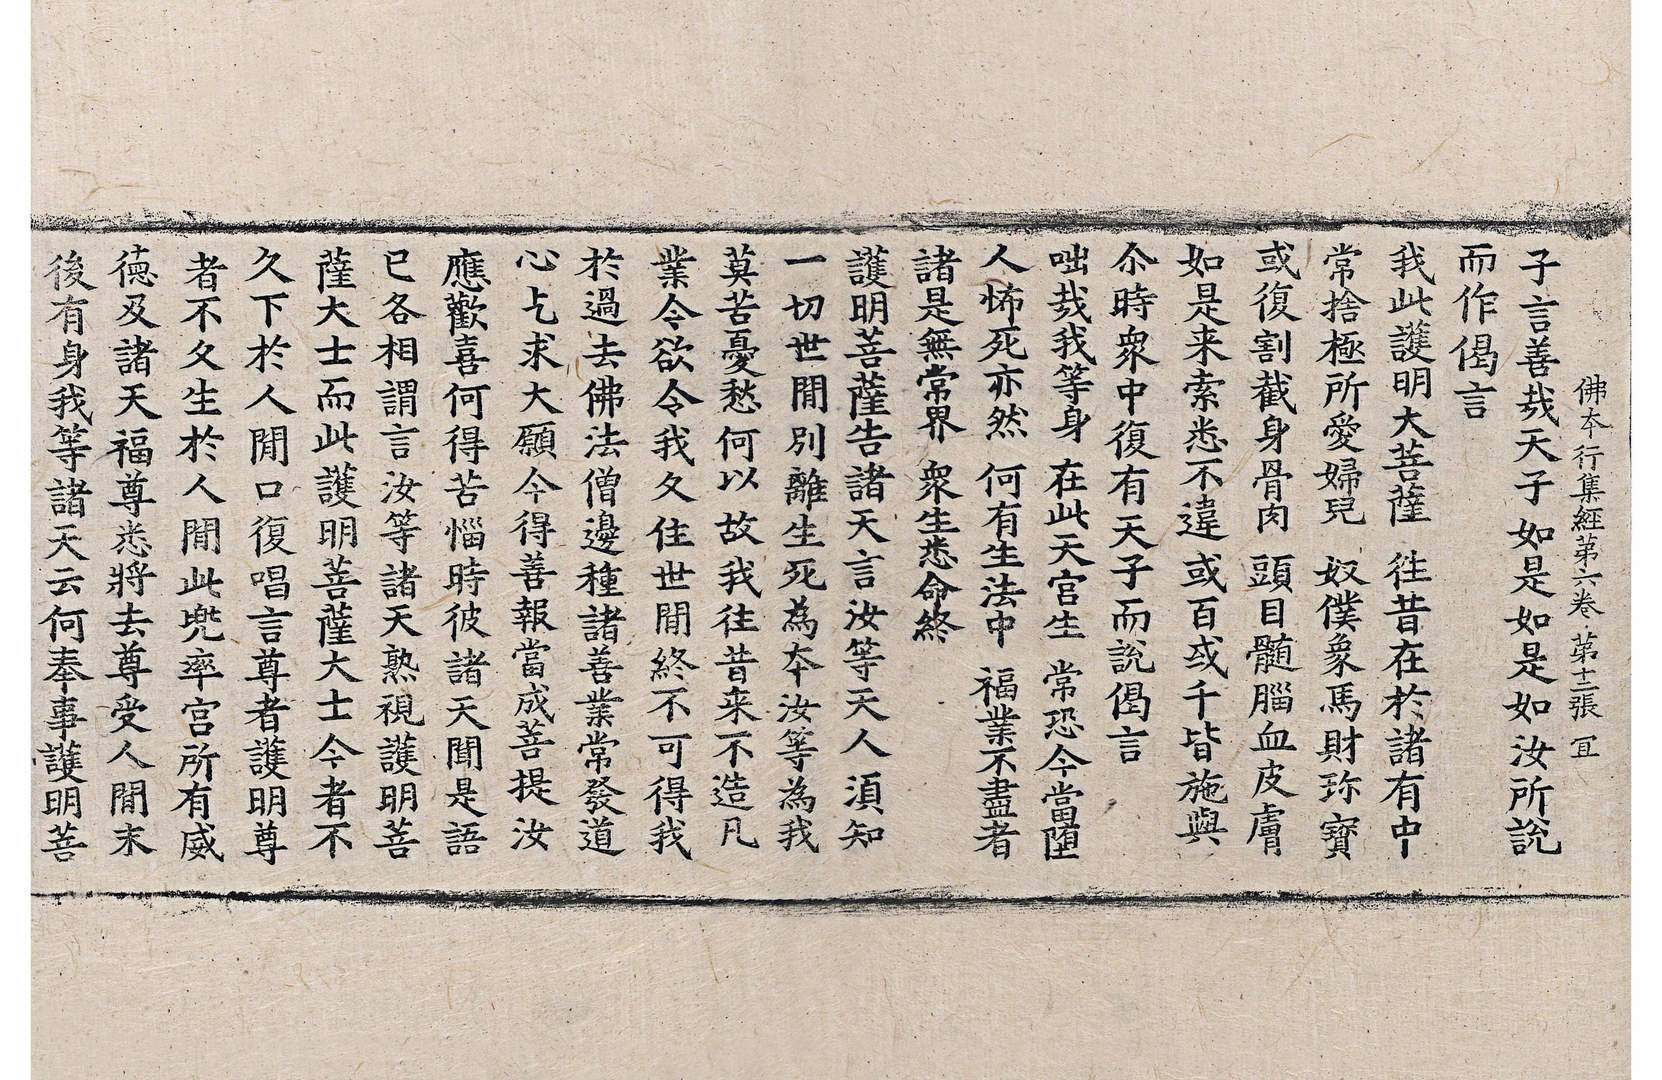 佛本行集經第六卷 第十二張 冝
子言善㢤天子如是如是如汝所說
而作偈言
我此護明大菩薩 徃昔在於諸有中
常捨極所愛婦兒 奴僕象馬財珎寶
或復割截身骨肉 頭目髓腦血皮膚
如是来索悉不違 或百或千皆施與
尒時衆中復有天子而說偈言
咄㢤我等身 在此天宮生 常恐今當墮
人怖死亦然 何有生法中 福業不盡者
諸是無常界 衆生悉命終
護明菩薩告諸天言汝等天人湏知
一切世閒別離生死為本汝等為我
莫苦憂愁何以故我往昔来不造凡
業今欲令我久住世閒終不可得我
於過去佛法僧邊種諸善業常發道
心乞求大願今得善報當成菩提汝
應歡喜何得苦惱時彼諸天聞是語
已各相謂言汝等諸天熟視護明菩
薩大士而此護明菩薩大士今者不
久下於人閒口復唱言尊者護明尊
者不久生於人閒此兜率宮所有威
德及諸天福尊悉將去尊受人閒末
後有身我等諸天云何奉事護明菩